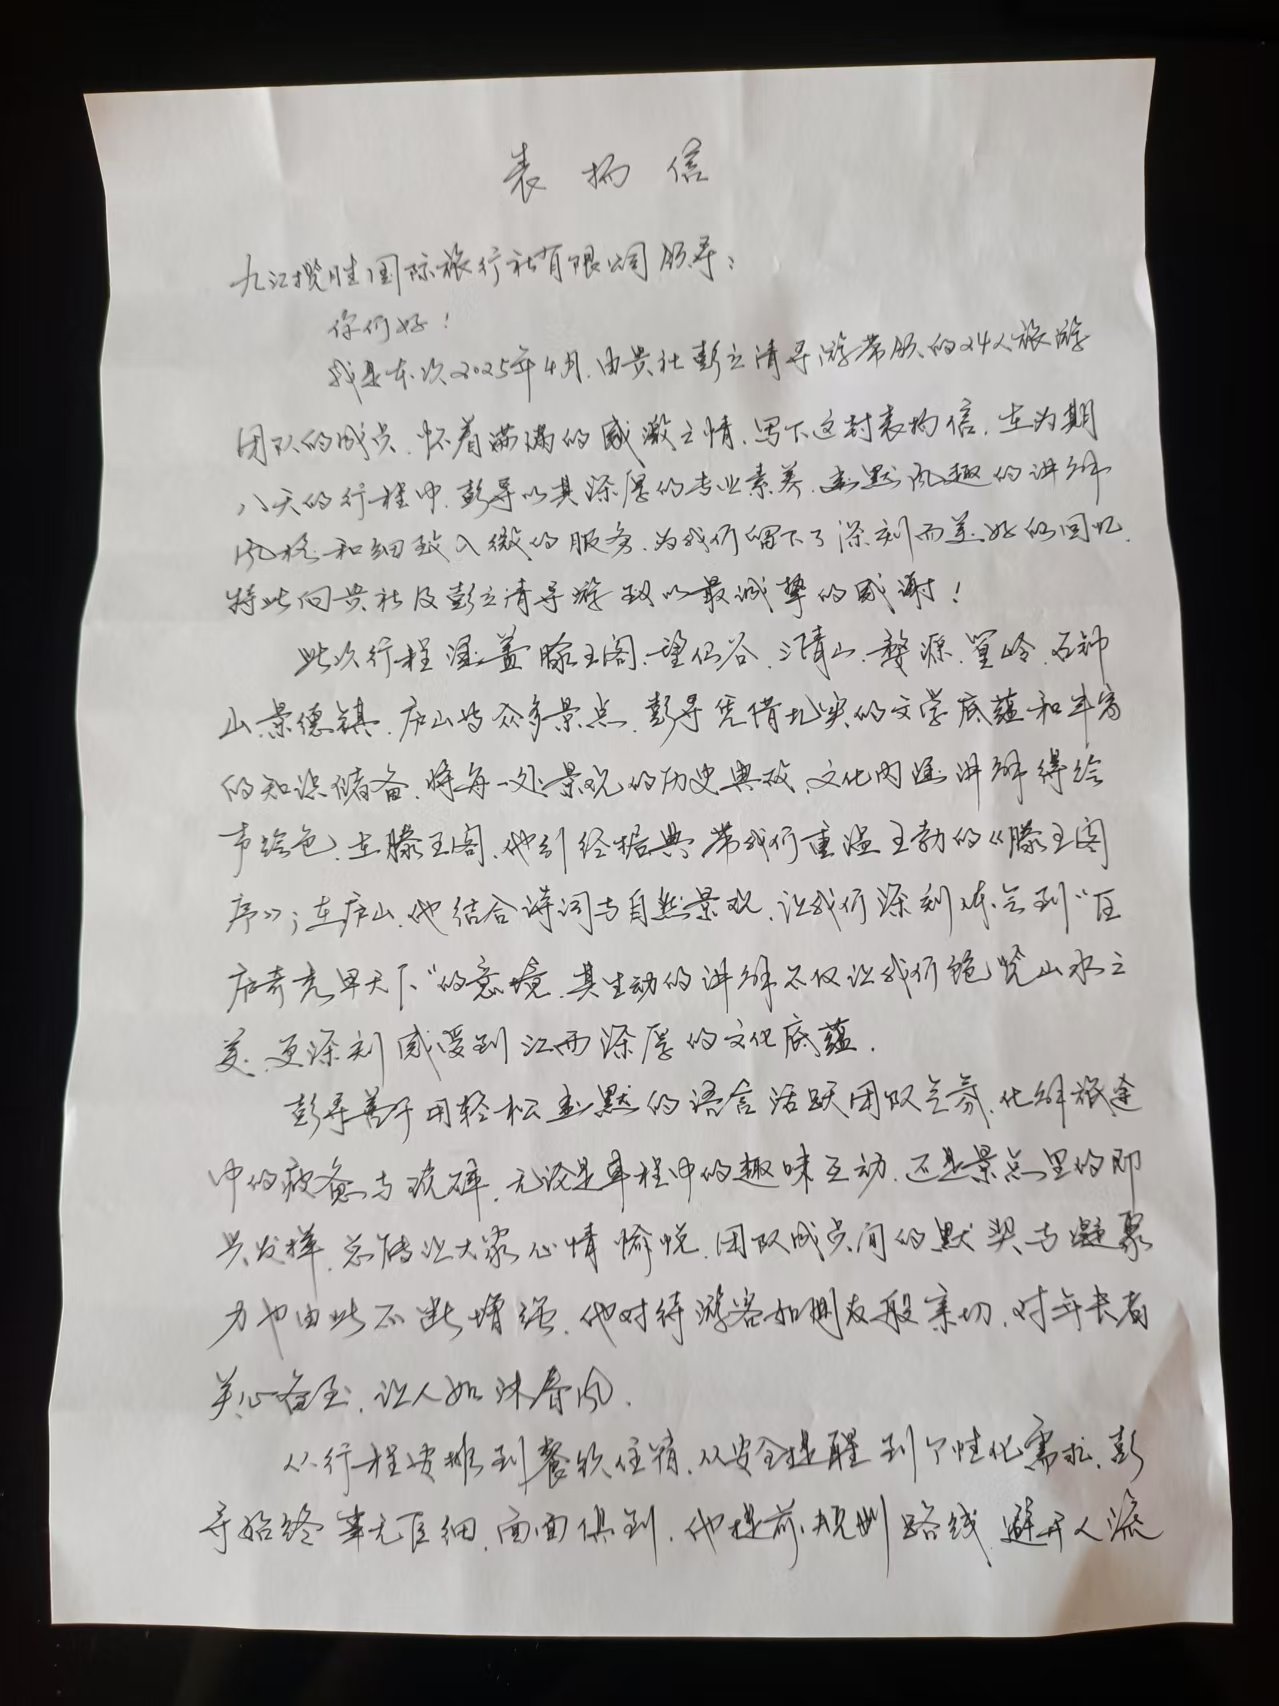 表扬信
九江揽胜国际旅行社有限公司领导：
你们好！
我是本次2025年4月.由贵社彭立清导游带领的24人旅游
团队的成员.怀着满满的感激之情.写下这封表扬信.在为期
八天的行程中.彭导以其深厚的专业素养.幽默风趣的讲解
风格和细致入微的服务.为我们留下了深刻而美好的回忆.
特此向贵社及彭立清导游致以最诚挚的感谢！
此次行程涵盖滕王阁.望仙谷.三清山.婺源.篁岭.石钟
山.景德镇.庐山等众多景点.彭导凭借扎实的文学底蕴和丰富
的知识储备.将每一处景观的历史典故.文化内涵讲解得绘
声绘色.在滕王阁.他引经据典带我们重温王勃的《滕王阁
序》；在庐山.他结合诗词与自然景观.让我们深刻体会到“匡
庐奇秀甲天下”的意境.其生动的讲解不仅让我们饱览山水之
美.更深刻感受到江西深厚的文化底蕴.
彭导善于用轻松幽默的语言活跃团队气氛.化解旅途
中的疲惫与琐碎.无论是车程中的趣味互动.还是景点里的即
兴发挥.总能让大家心情愉悦.团队成员间的默契与凝聚
力也由此不断增强.他对待游客如朋友般亲切.对年长者
关心备至.让人如沐春风.
从行程安排到餐饮住宿.从安全提醒到个性化需求.彭
导始终事无巨细.面面俱到.他提前规划路线.避开人流